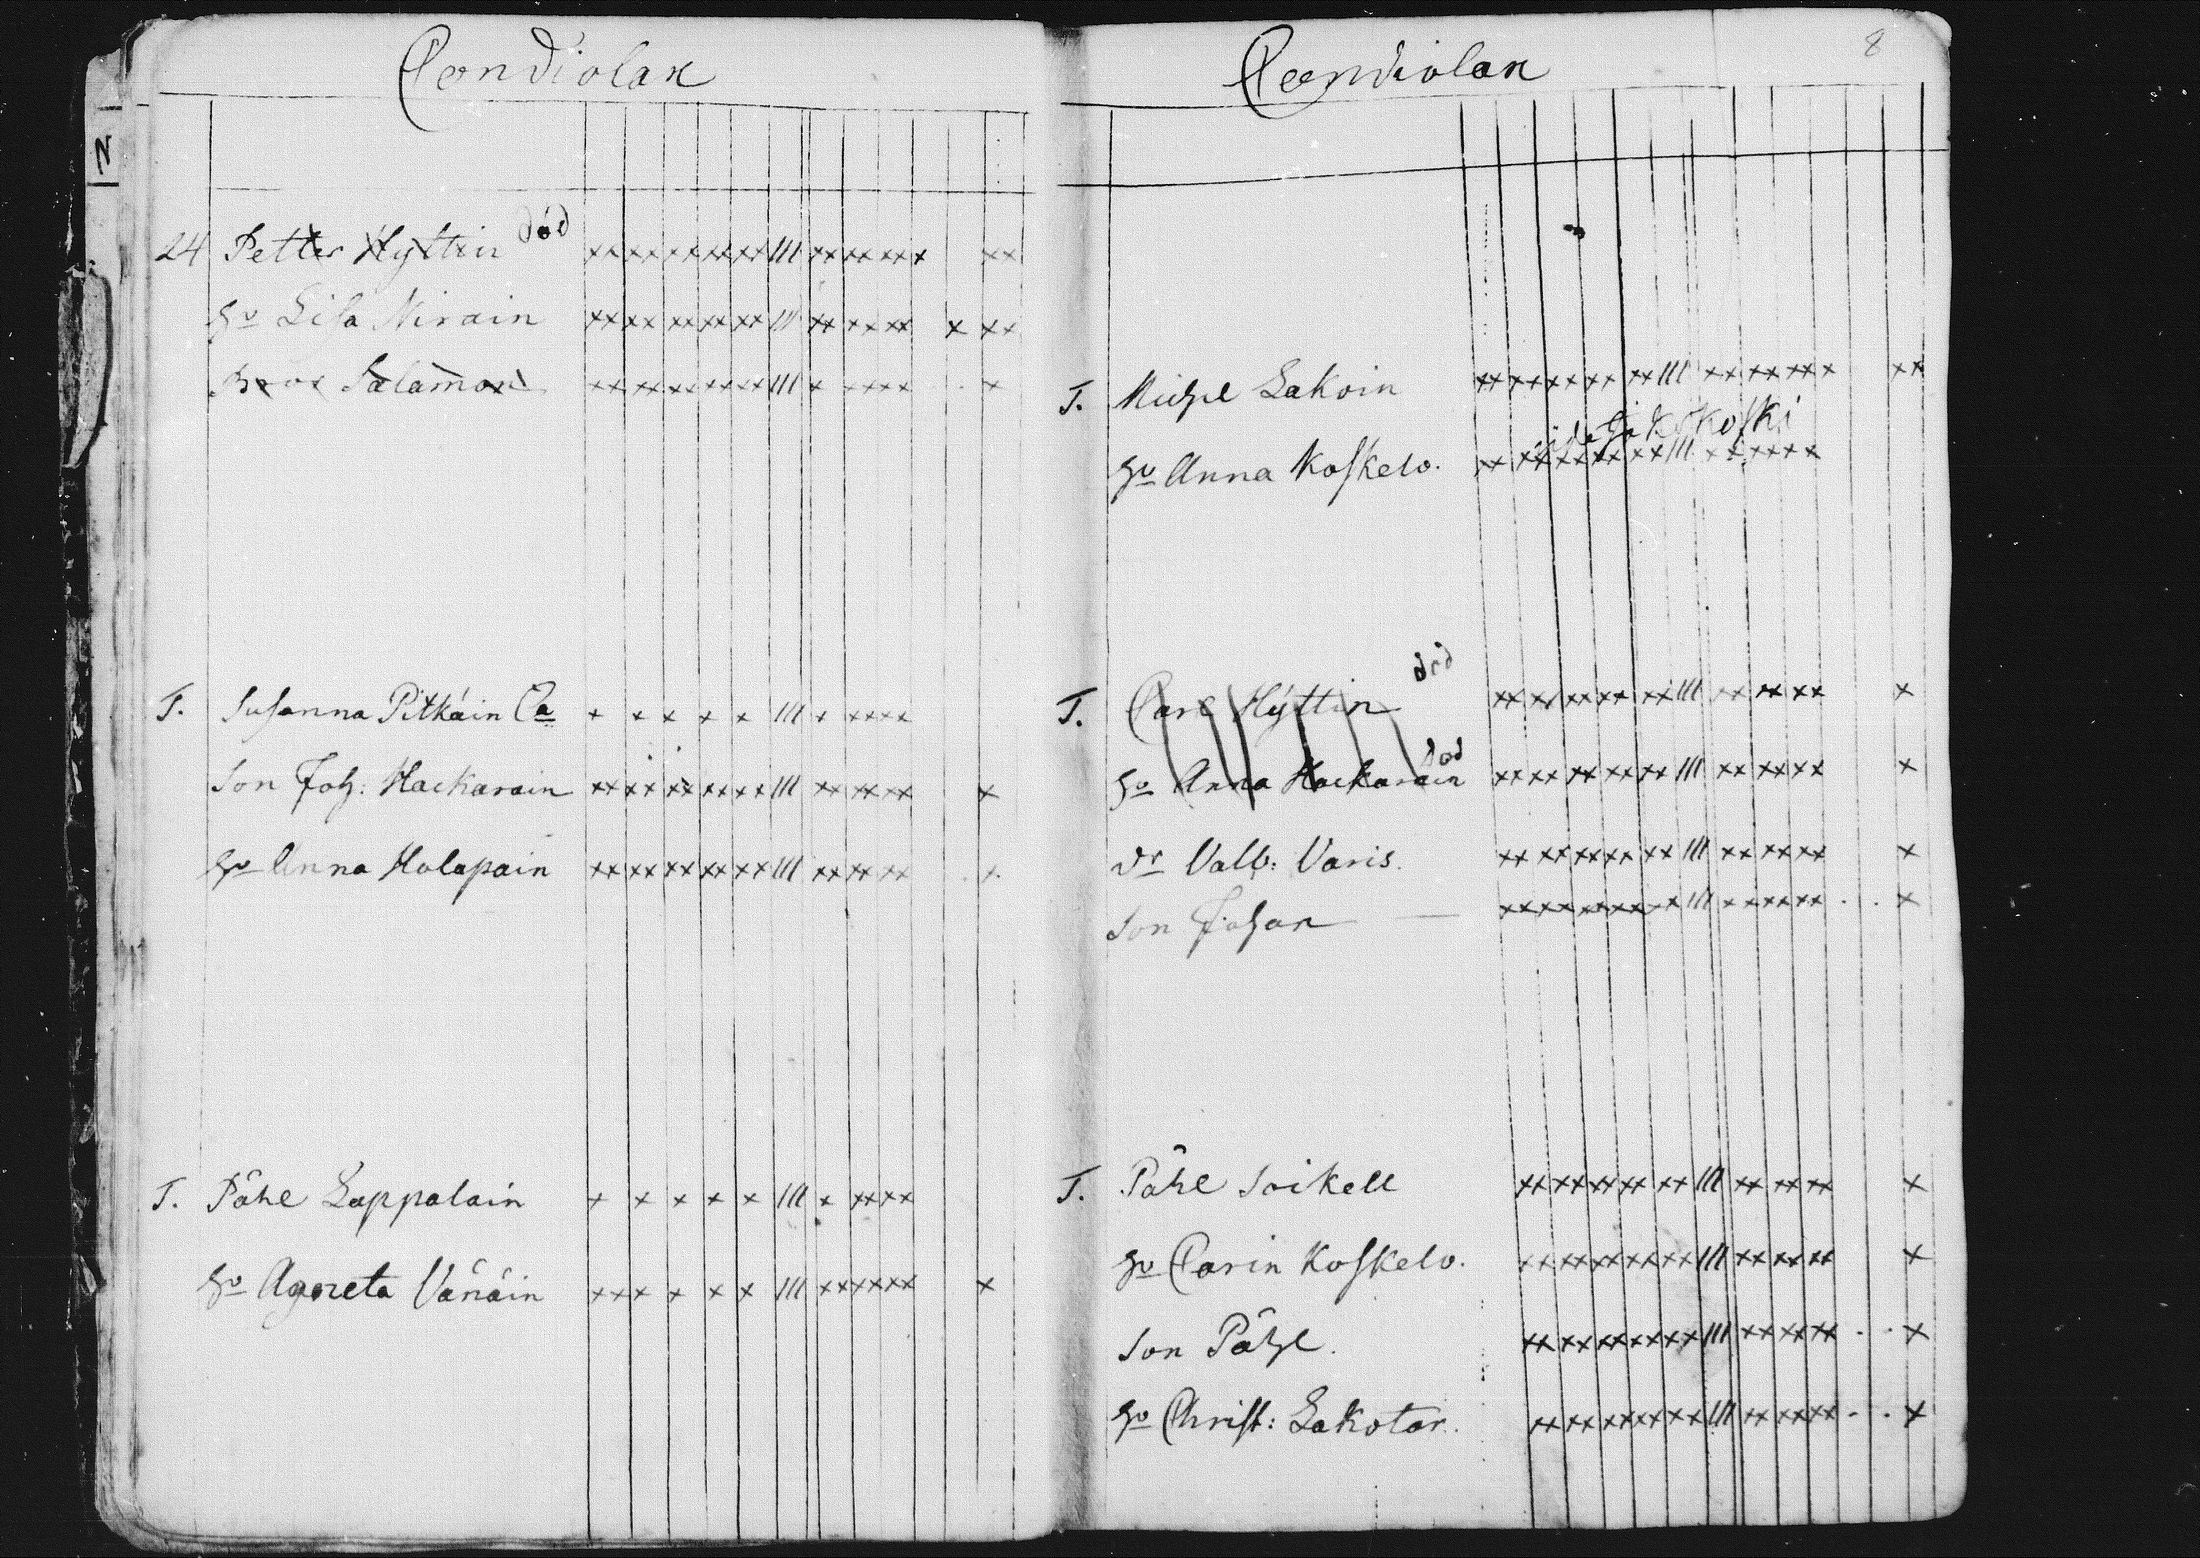 Condiolax
24 Petter Hyttin död
Hu Lisa Nirain
Bror Salamon
T. Susanna Pitkäin Ea
Son Joh: Hackarain
Hu Anna Holapain
T. Påhl Lappalain
Hu Agneta Vänäin
Condiolax
8
T. Michel Lakoin
Hu Anna Koskelo.
T. Carl Hÿttin död
Hu Anna Hackarain död
dr Valb: Varis.
Son Johan
T. Påhl Soikell
Hu Carin Koskelo.
Son Påhl.
Hu Christ: Lakotar.